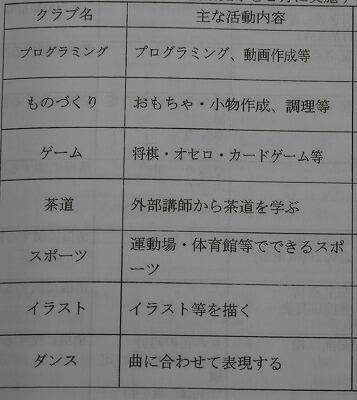 クラブ名 主な活動内容
プログラミング プログラミング、動画作成等
ものづくり おもちゃ・小物作成、調理等
ゲーム 将棋・オセロ・カードゲーム等
茶道 外部講師から茶道を学ぶ
スポーツ 運動場・体育館等でできるスポ
ーツ
イラスト イラスト等を描く
ダンス 曲に合わせて表現する